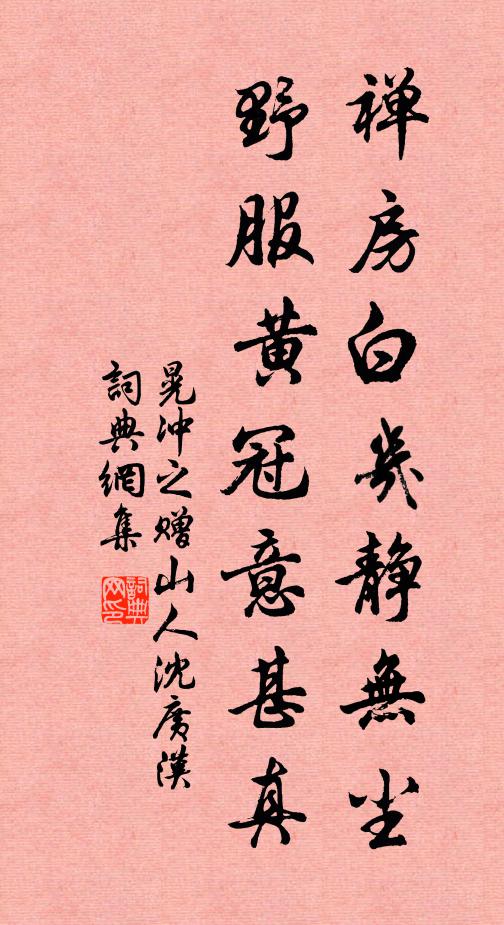 禅房白幾静無尘
野服黄冠意甚真
晁冲之贈山人沈廣漢
詞典網集
詞典网印